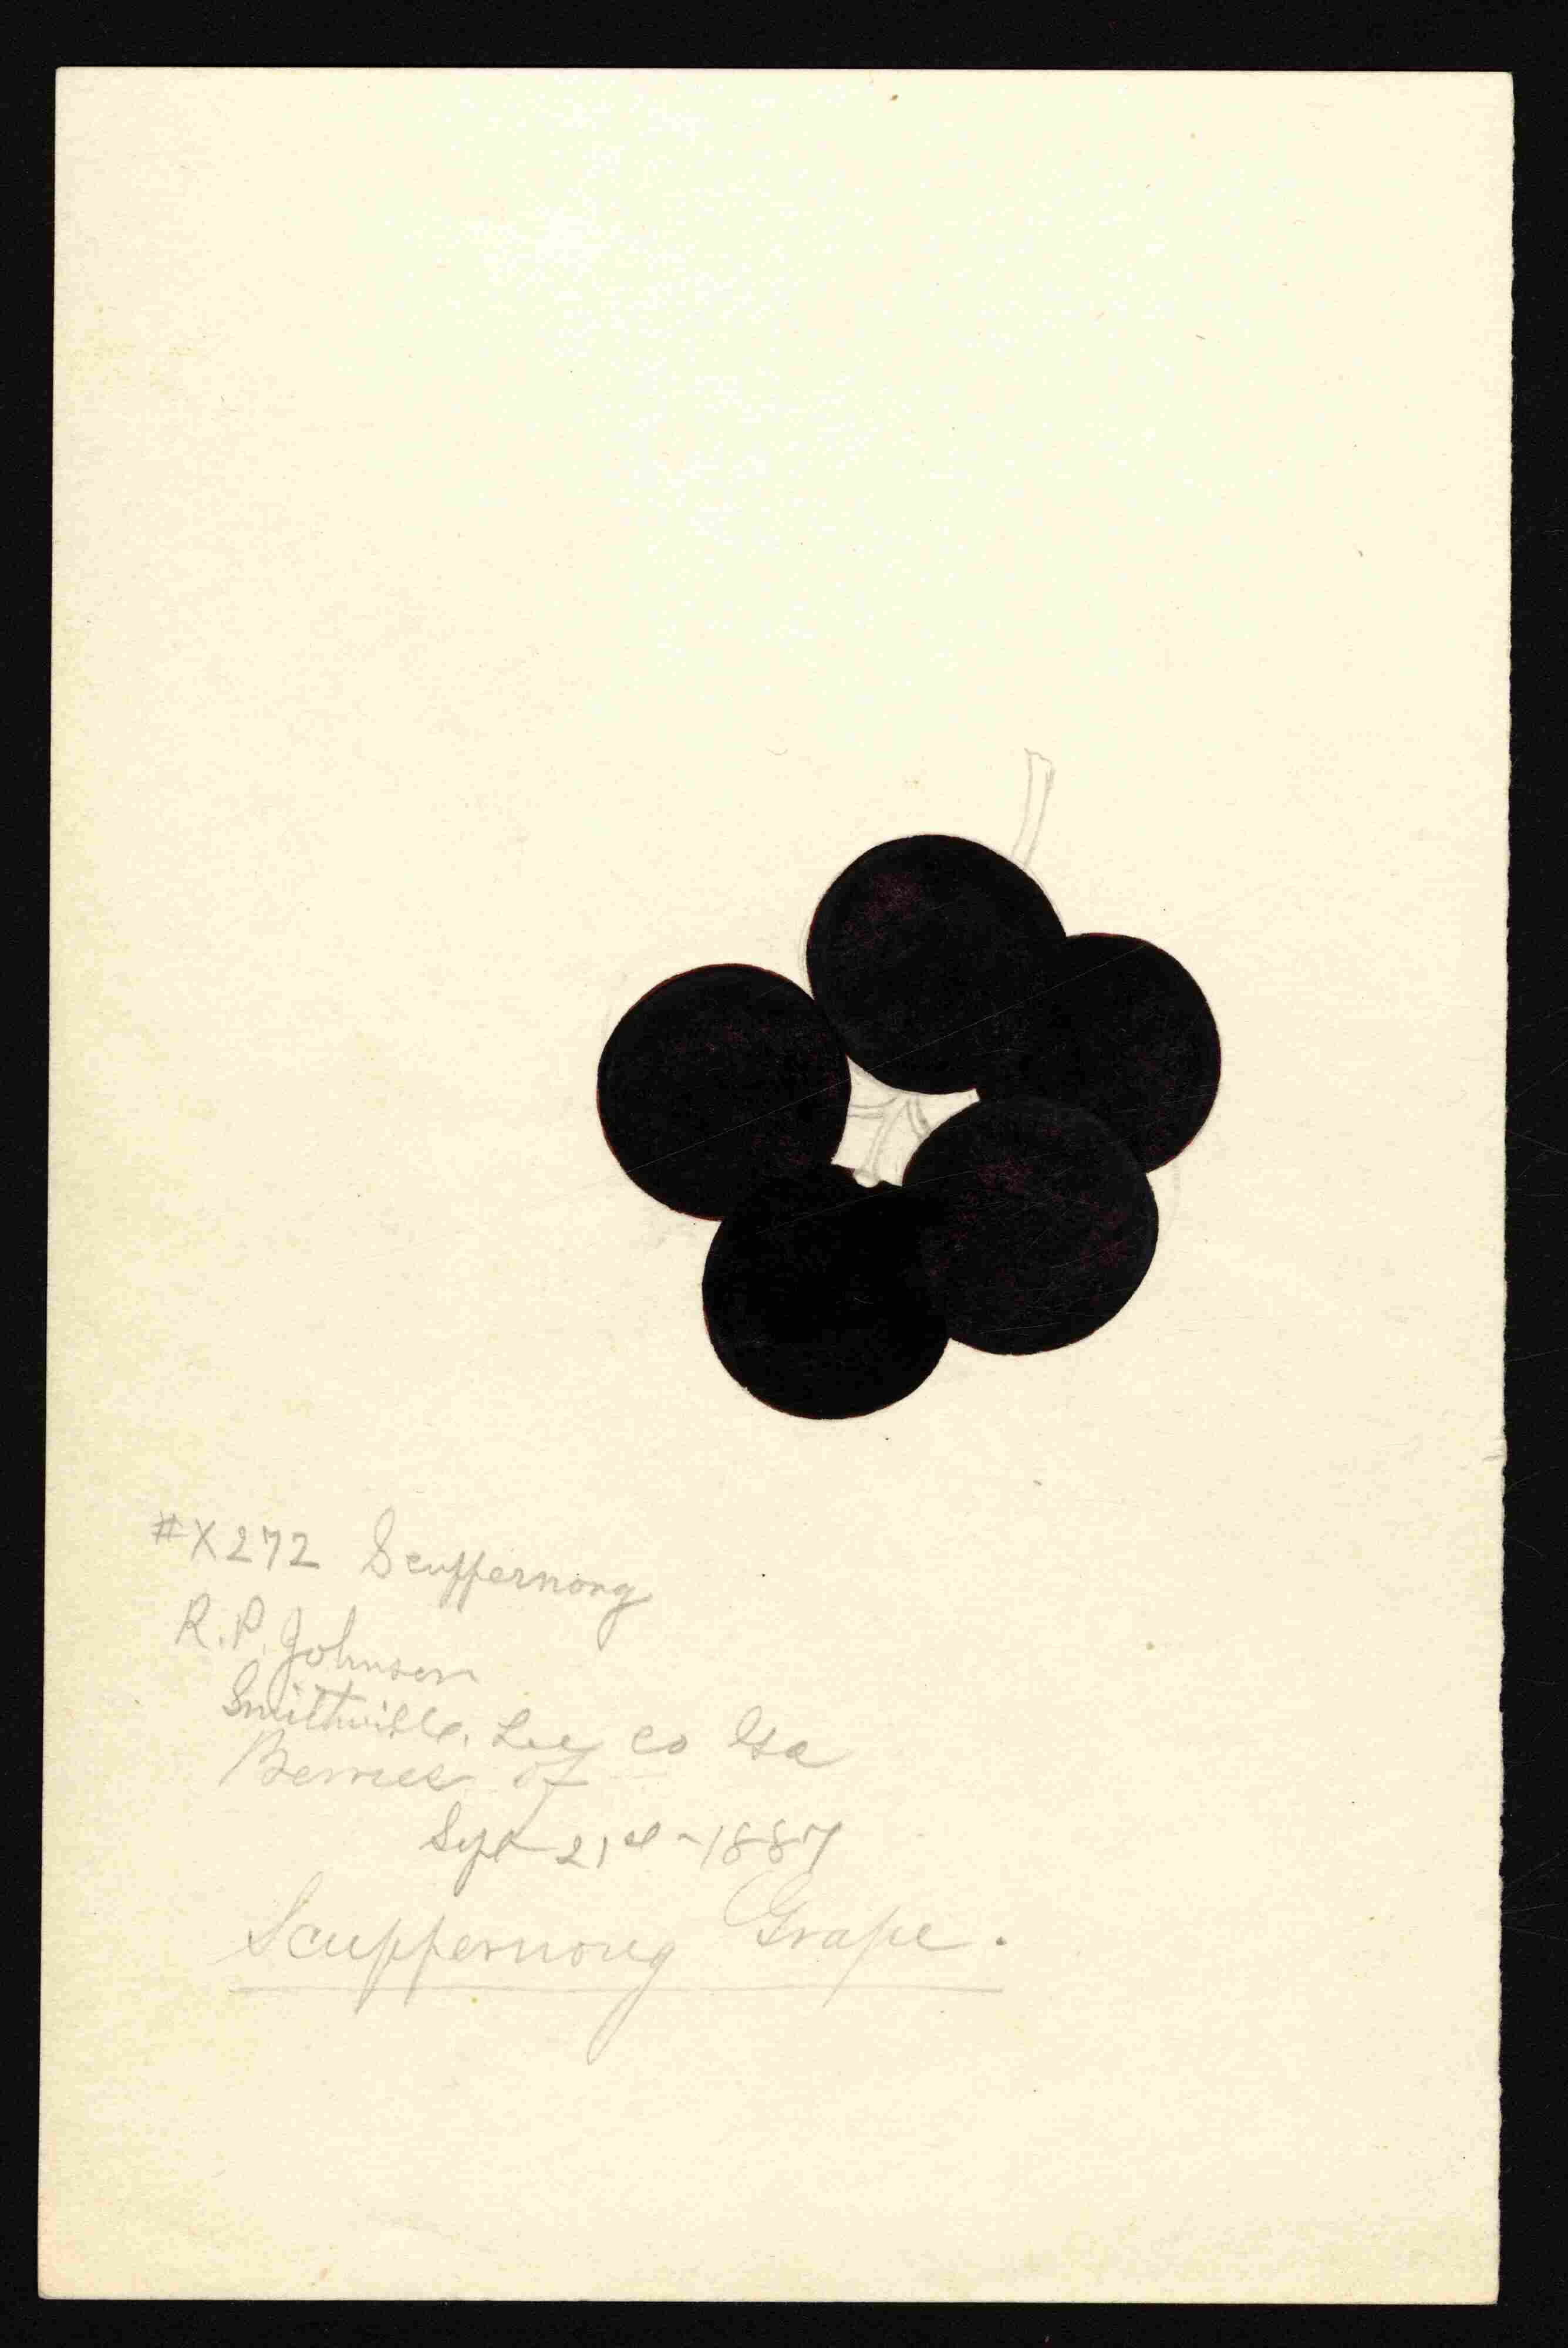 #X272 Scuppernong
R.P. Johnson
Smithville, Lee Co Ga
Berries of
Sept 21st - 1887
Scuppernong Grape.